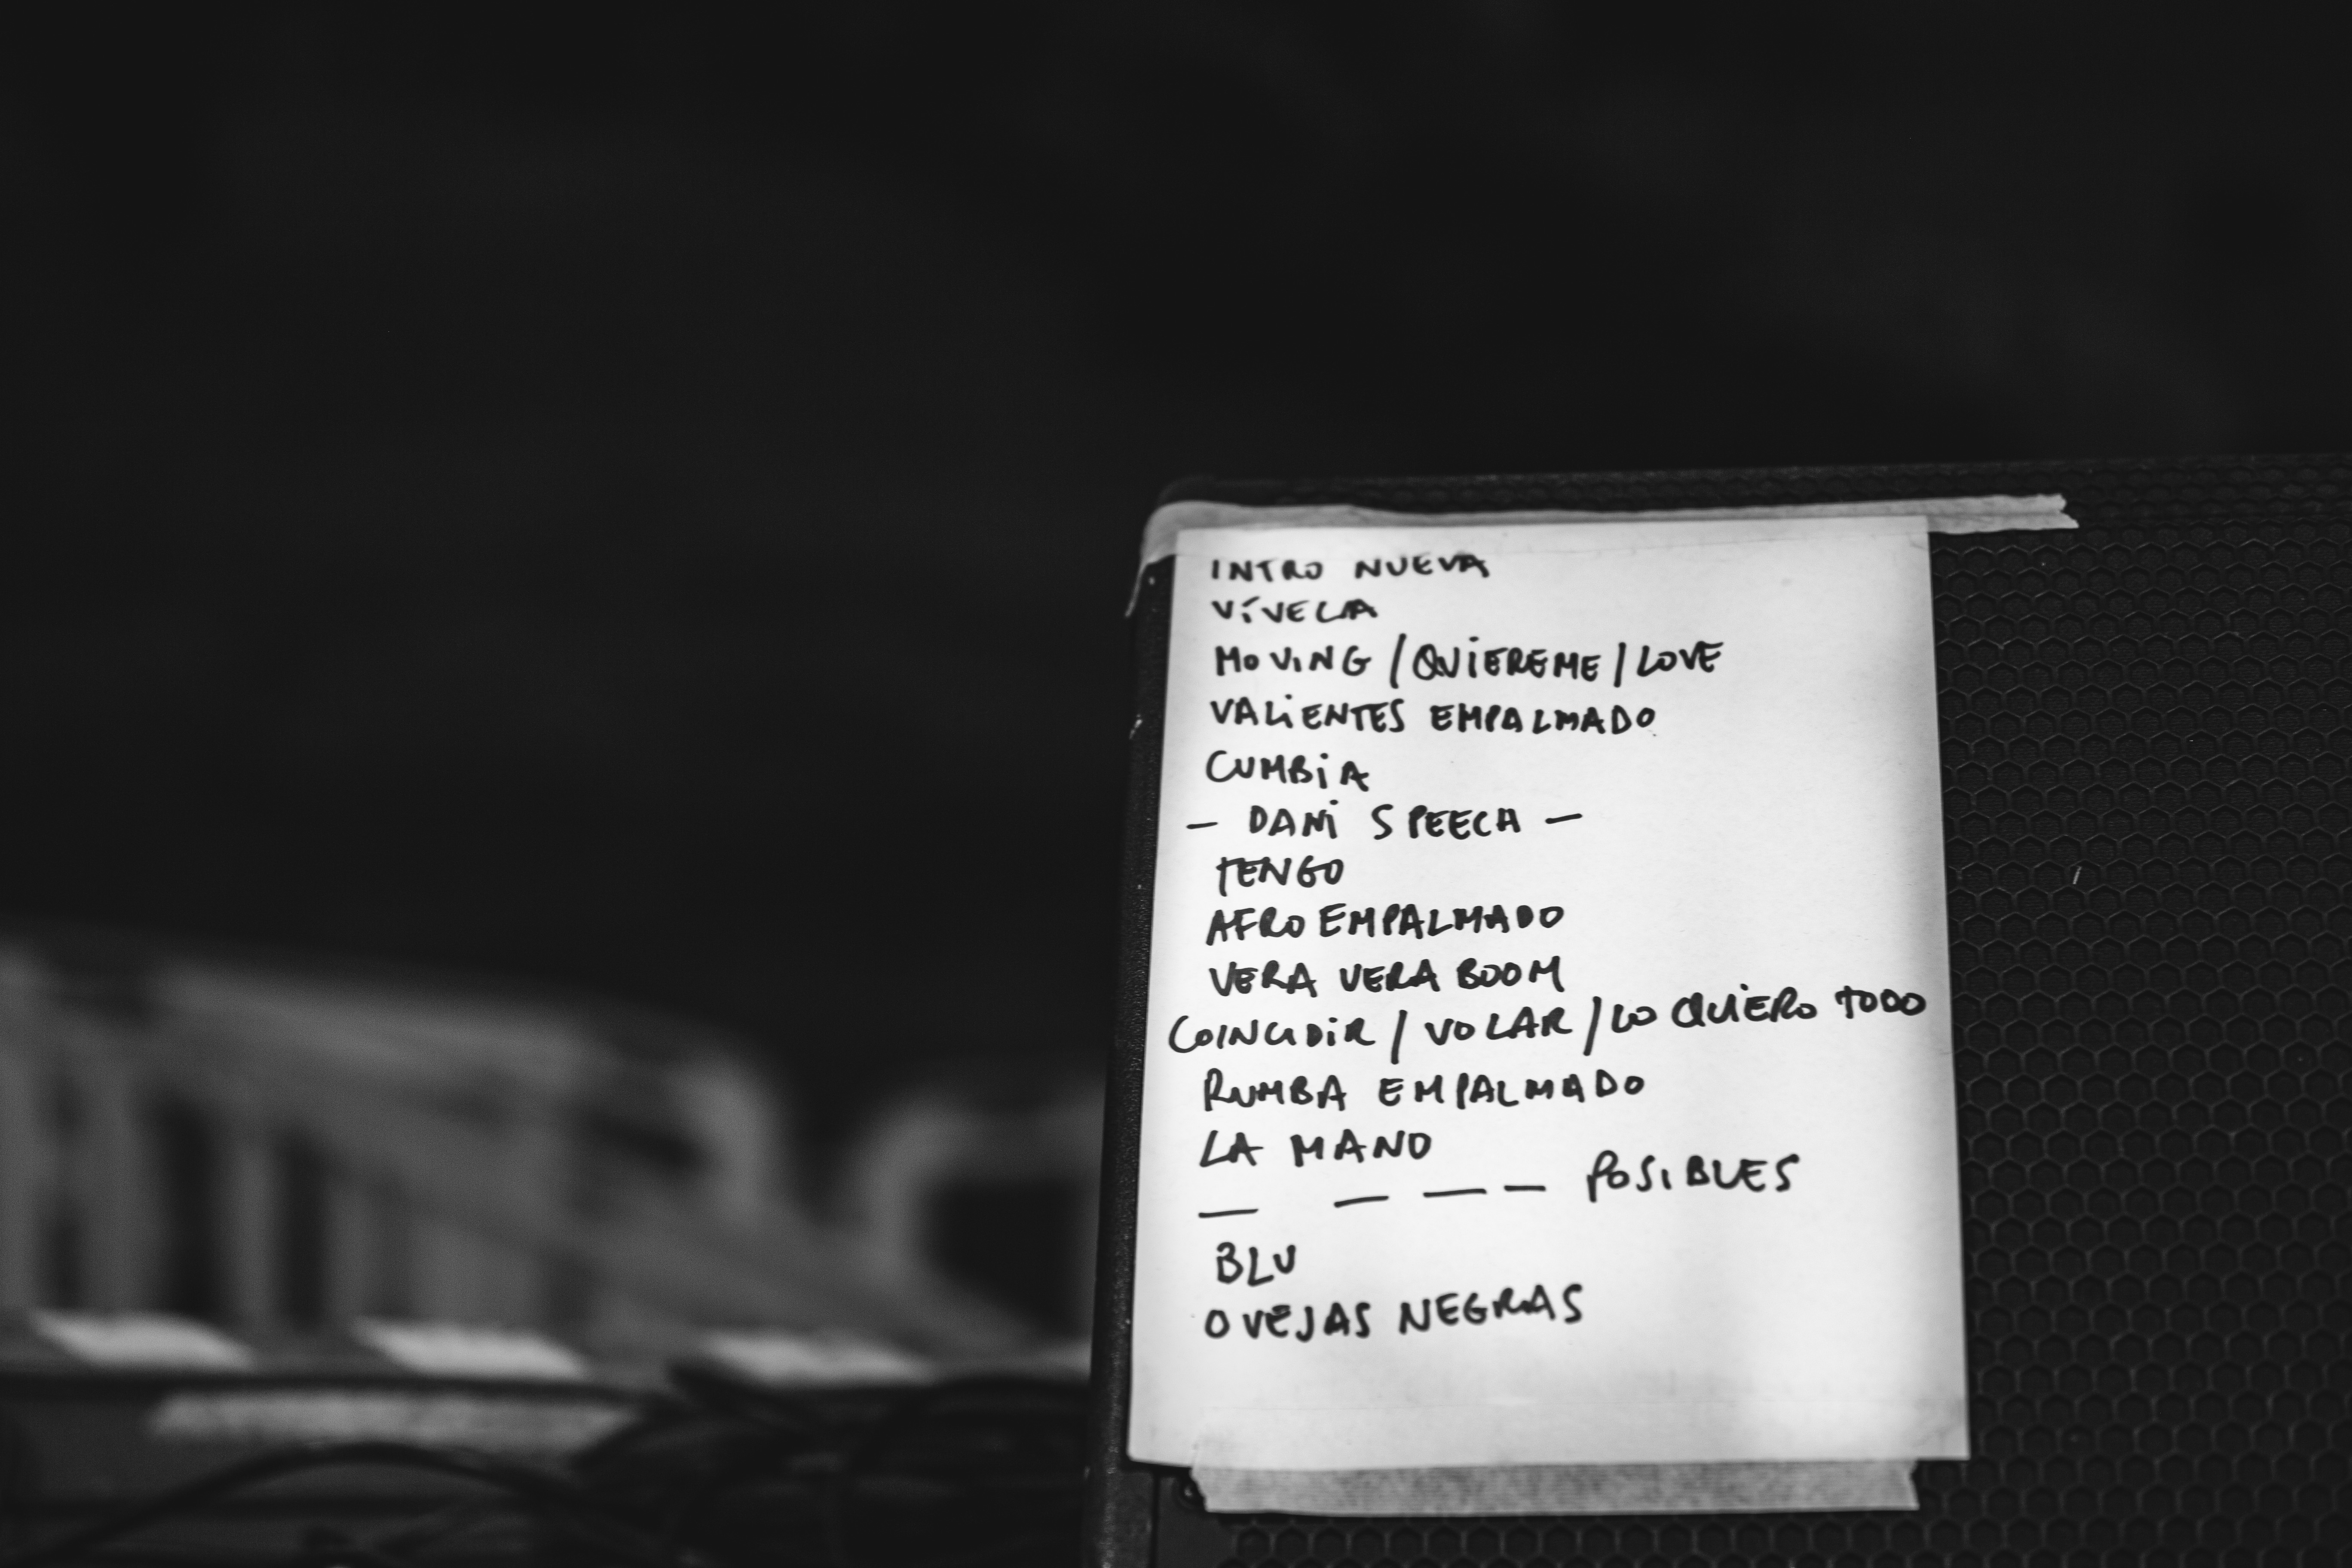 INTRO NUEVA
VÍVELA
MOVING / QUIEREME / LOVE
VALIENTES EMPALMADO
CUMBIA
— DANI SPEECH —
TENGO
AFRO EMPALMADO
VERA VERA BOOM
COINCIDIR / VOLAR / LO QUIERO TODO
RUMBA EMPALMADO
LA MANO
— — — — POSIBLES
BLU
OVEJAS NEGRAS